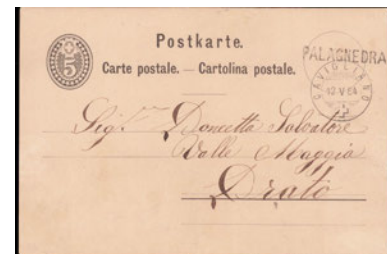 Postkarte.
5
Carte postale. — Cartolina postale.
PALAGNEDRA
CAVIGLIANO
12 V 84
Sig.r Doncetta Salvatore
Valle Maggia
Prato